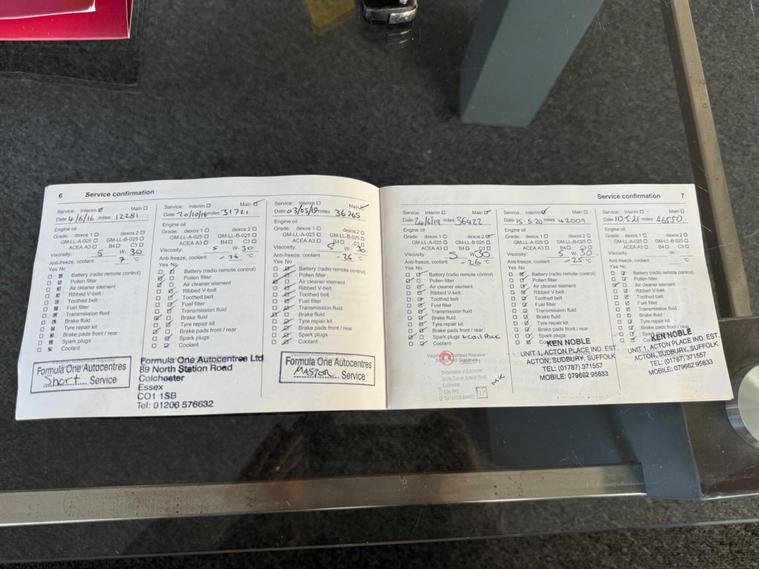 6 Service confirmation
Service: Interim Main
Date 4/6/16 miles 12281
Engine oil
Grade: dexos 1 dexos 2
GM-LL-A-025 GM-LL-B-025
ACEA A3 B4 C3
Viscosity: 5 W 30
Anti-freeze, coolant °C
Yes No
Battery (radio remote control)
Pollen filter
Air cleaner element
Ribbed V-belt
Toothed belt
Fuel filter
Transmission fluid
Brake fluid
Tyre repair kit
Brake pads front / rear
Spark plugs
Coolant
Formula One Autocentres
Short Service
Service: Interim Main
Date 20/10/18 miles 31721
Engine oil
Grade: dexos 1 dexos 2
GM-LL-A-025 GM-LL-B-025
ACEA A3 B4 C3
Viscosity: 5 W 30
Anti-freeze, coolant °C
Yes No
Battery (radio remote control)
Pollen filter
Air cleaner element
Ribbed V-belt
Toothed belt
Fuel filter
Transmission fluid
Brake fluid
Tyre repair kit
Brake pads front / rear
Spark plugs
Coolant
Formula One Autocentres Ltd
89 North Station Road
Colchester
Essex
CO1 1SB
Tel: 01206 576632
Service: Interim Main
Date 03/05/19 miles 36365
Engine oil
Grade: dexos 1 dexos 2
GM-LL-A-025 GM-LL-B-025
ACEA A3 B4 C3
Viscosity: 5 W 30
Anti-freeze, coolant -26 °C
Yes No
Battery (radio remote control)
Pollen filter
Air cleaner element
Ribbed V-belt
Toothed belt
Fuel filter
Transmission fluid
Brake fluid
Tyre repair kit
Brake pads front / rear
Spark plugs
Coolant
Formula One Autocentres
Service
Service confirmation 7
Service: Interim Main
Date 24/6/19 miles 36422
Engine oil
Grade: dexos 1 dexos 2
GM-LL-A-025 GM-LL-B-025
ACEA A3 B4 C3
Viscosity: 5 W 30
Anti-freeze, coolant -26 °C
Yes No
Battery (radio remote control)
Pollen filter
Air cleaner element
Ribbed V-belt
Toothed belt
Fuel filter
Transmission fluid
Brake fluid
Tyre repair kit
Brake pads front / rear
Spark plugs + Coil Pack
Coolant
Service: Interim Main
Date 15.5.20 miles 42009
Engine oil
Grade: dexos 1 dexos 2
GM-LL-A-025 GM-LL-B-025
ACEA A3 B4 C3
Viscosity: 5 W 30
Anti-freeze, coolant -25 °C
Yes No
Battery (radio remote control)
Pollen filter
Air cleaner element
Ribbed V-belt
Toothed belt
Fuel filter
Transmission fluid
Brake fluid
Tyre repair kit
Brake pads front / rear
Spark plugs
Coolant
KEN NOBLE
UNIT 1, ACTON PLACE IND. EST.
ACTON, SUDBURY, SUFFOLK
TEL: (01787) 371557
MOBILE: 079662 95833
Service: Interim Main
Date 10.5.21 miles 46550
Engine oil
Grade: dexos 1 dexos 2
GM-LL-A-025 GM-LL-B-025
ACEA A3 B4 C3
Viscosity: W
Anti-freeze, coolant °C
Yes No
Battery (radio remote control)
Pollen filter
Air cleaner element
Ribbed V-belt
Toothed belt
Fuel filter
Transmission fluid
Brake fluid
Tyre repair kit
Brake pads front / rear
Spark plugs
Coolant
KEN NOBLE
UNIT 1, ACTON PLACE IND. EST.
ACTON, SUDBURY, SUFFOLK
TEL: (01787) 371557
MOBILE: 079662 95833